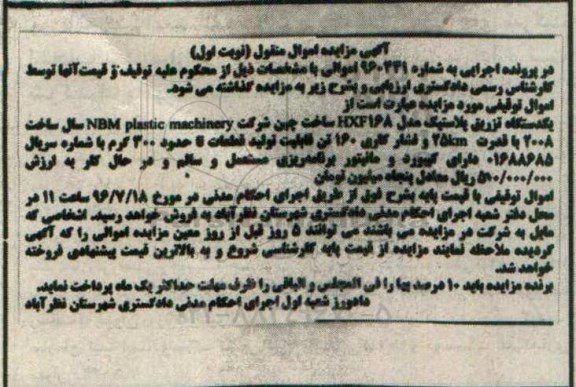 آگهی مزایده اموال منقول (نوبت اول)
در پرونده اجرایی به شماره ۹۶۰۴۳۱ اموالی با مشخصات ذیل از محکوم علیه توقیف و قیمت آنها توسط
کارشناس رسمی دادگستری ارزیابی و بشرح زیر به مزایده گذاشته می شود.
اموال توقیفی مورد مزایده عبارت است از
یکدستگاه تزریق پلاستیک مدل HXF۱۶۸ ساخت چین شرکت NBM plastic machinery سال ساخت
۲۰۰۸ با قدرت ۲۵km و فشار کاری ۱۶۰ تن قابلیت تولید قطعات تا حدود ۳۰۰ گرم با شماره سریال
۰۱۶۸۸۶۸۵ دارای کیبورد و مانیتور برنامه‌ریزی مستعمل و سالم و در حال کار به ارزش
۵۱۰/۰۰۰/۰۰۰ ریال معادل پنجاه میلیون تومان
اموال توقیفی با قیمت پایه بشرح فوق از طریق اجرای احکام مدنی در مورخ ۹۶/۷/۱۸ ساعت ۱۱ در
محل دفتر شعبه اجرای احکام مدنی دادگستری شهرستان نظرآباد به فروش خواهد رسید. اشخاصی که
مایل به شرکت در مزایده می باشند می توانند ۵ روز قبل از روز معین مزایده اموالی را که آگهی
گردیده ملاحظه نمایند مزایده از قیمت پایه کارشناسی شروع و به بالاترین قیمت پیشنهادی فروخته
خواهد شد.
برنده مزایده باید ۱۰ درصد بها را فی المجلس و الباقی را ظرف مهلت حداکثر یک ماه پرداخت نماید.
دادورز شعبه اول اجرای احکام مدنی دادگستری شهرستان نظرآباد